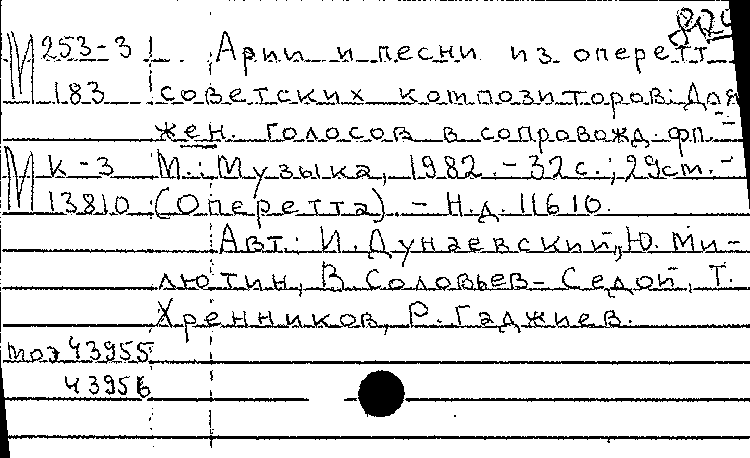 М 253-3 Арии и песни из оперетт
183 советских композиторов: Для
жен. голосов в сопровожд. фп. -
М К-3 М.: Музыка, 1982. - 32 с.; 29 ст. -
13810 (Оперетта). - Н.д. 11610.
Авт.: И. Дунаевский, Ю. Ми-
лютин, В. Соловьев-Седой, Т.
Хренников, Р. Гаджиев.
43955
43956